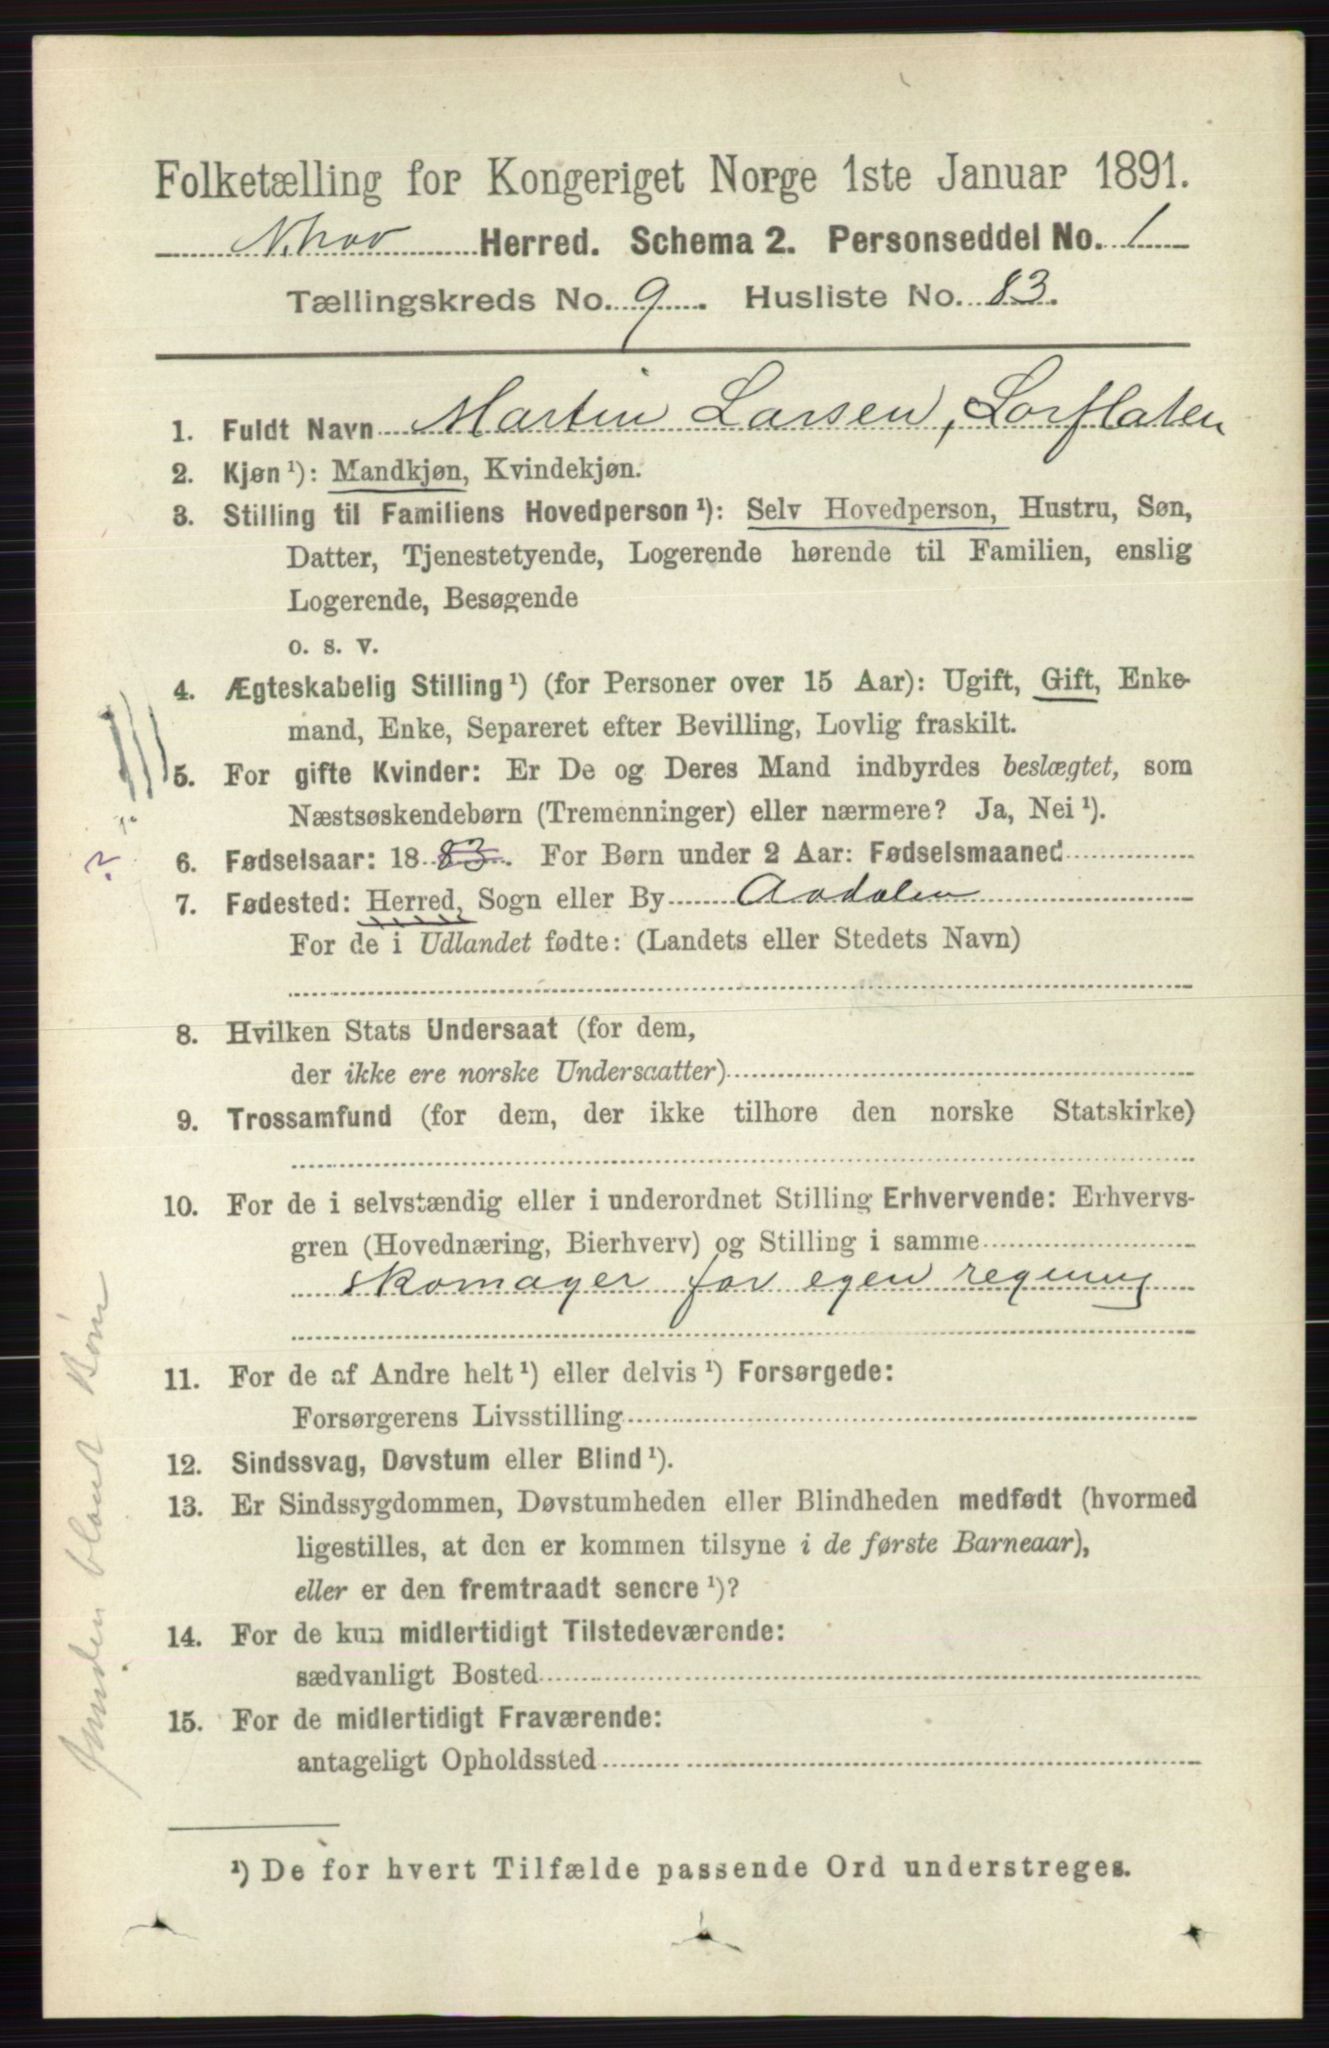 Folketælling for Kongeriget Norge 1ste Januar 1891.
Herred. Schema 2. Personseddel No. 1
Tællingskreds No. 9. Husliste No. 83.
1. Fuldt Navn Martin Larsen, Lorflaten
2. Kjøn ¹): Mandkjøn, Kvindekjøn.
3. Stilling til Familiens Hovedperson ¹): Selv Hovedperson, Hustru, Søn,
Datter, Tjenestetyende, Logerende hørende til Familien, enslig
Logerende, Besøgende
o. s. v.
4. Ægteskabelig Stilling ¹) (for Personer over 15 Aar): Ugift, Gift, Enke-
mand, Enke, Separeret efter Bevilling, Lovlig fraskilt.
5. For gifte Kvinder: Er De og Deres Mand indbyrdes beslægtet, som
Næstsøskendebørn (Tremenninger) eller nærmere? Ja, Nei ¹).
?
6. Fødselsaar: 1883. For Børn under 2 Aar: Fødselsmaaned
7. Fødested: Herred, Sogn eller By Aadalen
For de i Udlandet fødte: (Landets eller Stedets Navn)
8. Hvilken Stats Undersaat (for dem,
der ikke ere norske Undersaatter)
9. Trossamfund (for dem, der ikke tilhore den norske Statskirke)
10. For de i selvstændig eller i underordnet Stilling Erhvervende: Erhvervs-
gren (Hovednæring, Bierhverv) og Stilling i samme
skomager for egen regning
11. For de af Andre helt ¹) eller delvis ¹) Forsørgede:
Forsørgerens Livsstilling
12. Sindssvag, Døvstum eller Blind ¹).
13. Er Sindssygdommen, Døvstumheden eller Blindheden medfødt (hvormed
ligestilles, at den er kommen tilsyne i de første Barneaar),
eller er den fremtraadt senere ¹)?
14. For de kun midlertidigt Tilstedeværende:
sædvanligt Bosted
15. For de midlertidigt Fraværende:
antageligt Opholdssted
¹) De for hvert Tilfælde passende Ord understreges.